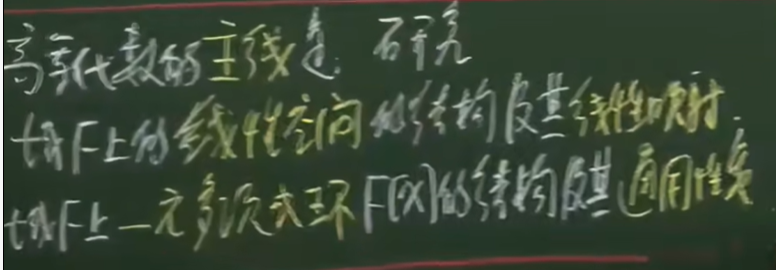 高等代数的主线是：研究
域F上的线性空间的结构及其线性映射.
域F上一元多项式环F[x]的结构及其通用性质